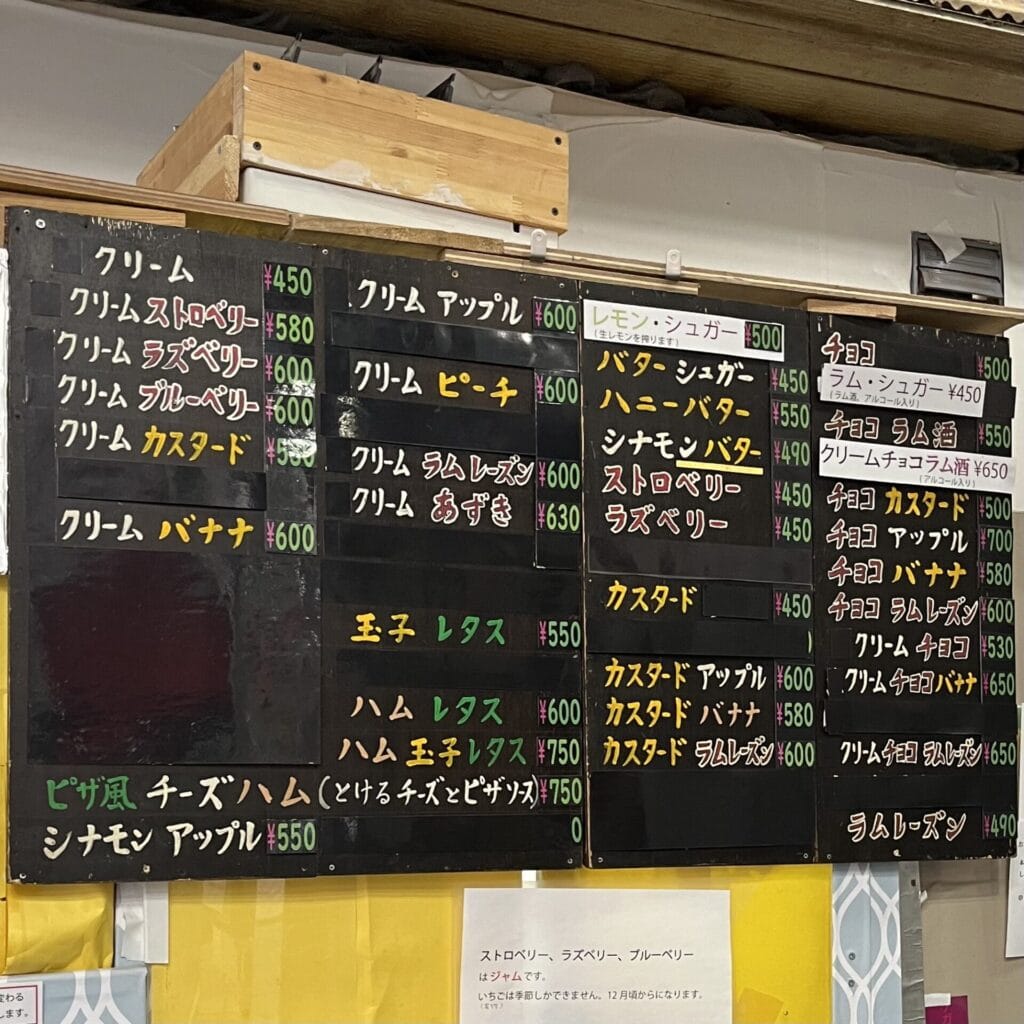 クリーム ¥450
クリーム ストロベリー ¥580
クリーム ラズベリー ¥600
クリーム ブルーベリー ¥600
クリーム カスタード
クリーム バナナ ¥600
クリーム アップル ¥600
クリーム ピーチ ¥600
クリーム ラムレーズン ¥600
クリーム あずき ¥630
玉子 レタス ¥550
ハム レタス ¥600
ハム 玉子 レタス ¥750
ピザ風 チーズハム(とけるチーズとピザソース) ¥750
シナモン アップル ¥550
0
レモン・シュガー ¥500
(生レモンを搾ります)
バター シュガー ¥450
ハニーバター ¥550
シナモンバター ¥490
ストロベリー ¥450
ラズベリー ¥450
カスタード ¥450
カスタード アップル ¥600
カスタード バナナ ¥580
カスタード ラムレーズン ¥600
チョコ ¥500
ラム・シュガー ¥450
(ラム酒、アルコール入り)
チョコ ラム酒 ¥550
クリームチョコラム酒 ¥650
(アルコール入り)
チョコ カスタード ¥500
チョコ アップル ¥700
チョコ バナナ ¥580
チョコ ラムレーズン ¥600
クリーム チョコ ¥530
クリームチョコバナナ ¥650
クリームチョコ ラムレーズン ¥650
ラムレーズン ¥490
ストロベリー、ラズベリー、ブルーベリー
はジャムです。
いちごは季節しかできません。12月頃からになります。
変わる
します。